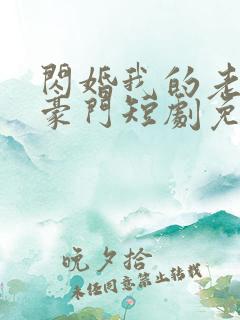 閃婚我的老
豪門短劇免
晚夕拾
未任同意禁止转载